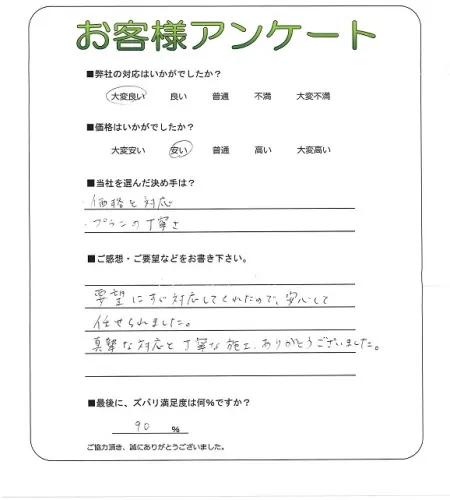 お客様アンケート
■弊社の対応はいかがでしたか？
大変良い 良い 普通 不満 大変不満
■価格はいかがでしたか？
大変安い 安い 普通 高い 大変高い
■当社を選んだ決め手は？
・価格と対応
・プランの丁寧さ
■ご感想・ご要望などをお書き下さい。
要望にすぐ対応してくれたので、安心して
任せられました。
真摯な対応と丁寧な施工、ありがとうございました。
■最後に、ズバリ満足度は何％ですか？
90 ％
ご協力頂き、誠にありがとうございました。